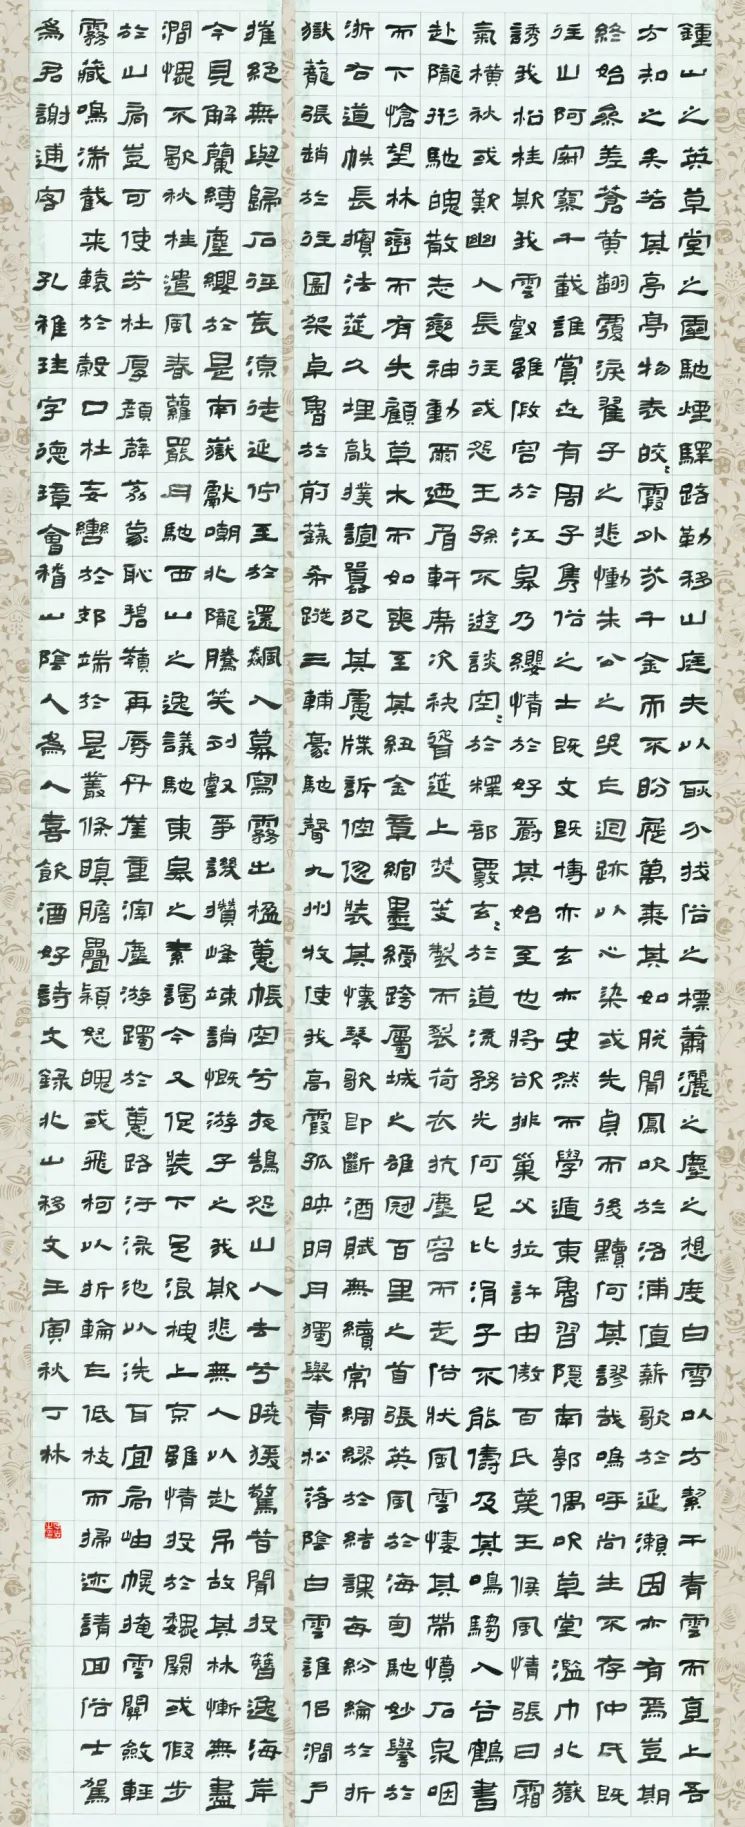 鍾山之英草堂之靈馳煙驛路勒移山庭夫以耿介拔俗之標蕭灑之塵之想度白雪以方絜干青雲而直上吾
方知之矣若其亭亭物表皎〻霞外芥千金而不盼屣萬乘其如脫聞鳳吹於洛浦值薪歌於延瀨固亦有焉豈期
終始參差蒼黃翻覆淚翟子之悲慟朱公之哭乍迴跡以心染或先貞而後黷何其謬哉嗚呼尚生不存仲氏既
往山阿寂寥千載誰賞世有周子雋俗之士既文既博亦玄亦史然而學遁東魯習隱南郭偶吹草堂濫巾北嶽
誘我松桂欺我雲壑雖假容於江皋乃纓情於好爵其始至也將欲排巢父拉許由傲百氏蔑王侯風情張日霜
氣橫秋或歎幽人長往或怨王孫不遊談空〻於釋部覈玄〻於道流務光何足比涓子不能儔及其鳴騶入谷鶴書
赴隴形馳魄散志變神動爾迺眉軒席次袂聳筵上焚芰製而裂荷衣抗塵容而走俗狀風雲悽其帶憤石泉咽
而下愴望林巒而有失顧草木而如喪至其紐金章綰墨綬跨屬城之雄冠百里之首張英風於海甸馳妙譽於
浙右道帙長擯法筵久埋敲撲諠囂犯其慮牒訴倥傯裝其懷琴歌即斷酒賦無續常綢繆於結課每紛綸於折
獄籠張趙於往圖架卓魯於前籙希蹤三輔豪馳聲九州牧使我高霞孤映明月獨舉青松落陰白雲誰侶澗戶
摧絕無與歸石徑荒涼徒延佇至於還飆入幕寫霧出楹蕙帳空兮夜鵠怨山人去兮曉猨驚昔聞投簪逸海岸
今見解蘭縛塵纓於是南嶽獻嘲北隴騰笑列壑爭譏攢峰竦誚慨游子之我欺悲無人以赴弔故其林慚無盡
澗愧不歇秋桂遣風春蘿罷月馳西山之逸議馳東皋之素謁今又促裝下邑浪栧上京雖情投於魏闕或假步
於山扃豈可使芳杜厚顏薜荔蒙恥碧嶺再辱丹崖重滓塵游躅於蕙路汙淥池以洗耳宜扃岫幌掩雲關斂輕
霧藏鳴湍截來轅於轂口杜妄轡於郊端於是叢條瞋膽疊穎怒魄或飛柯以折輪乍低枝而掃迹請回俗士駕
為君謝逋客 孔稚珪字德璋會稽山陰人為人喜飲酒好詩文錄北山移文壬寅秋丁林